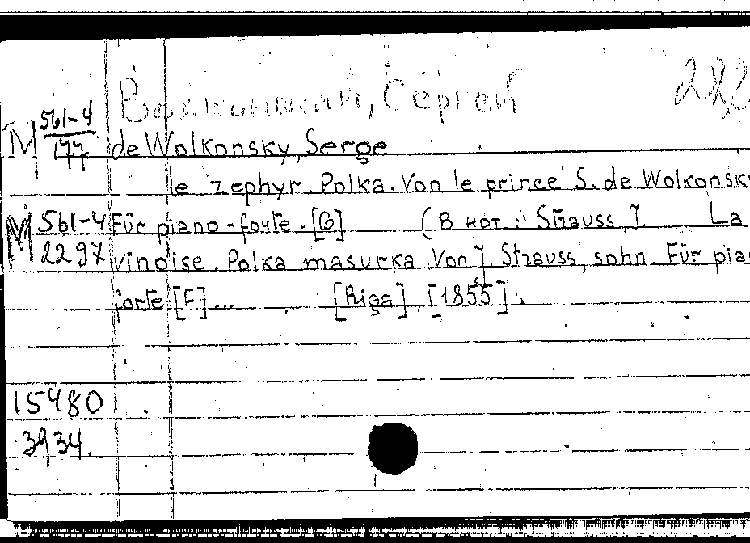 Волконский, Сергей 222
М 561-4/177 de Wolkonsky, Serge
le zephyr. Polka. Von le prince S. de Wolkonsky
М 561-4/2297 Für piano-forte. [G] (В нот.: Strauss, J. La
vinoise. Polka masurka von J. Strauss, sohn. Für pia
forte [F]... [Riga] [1855].
15480
3934.